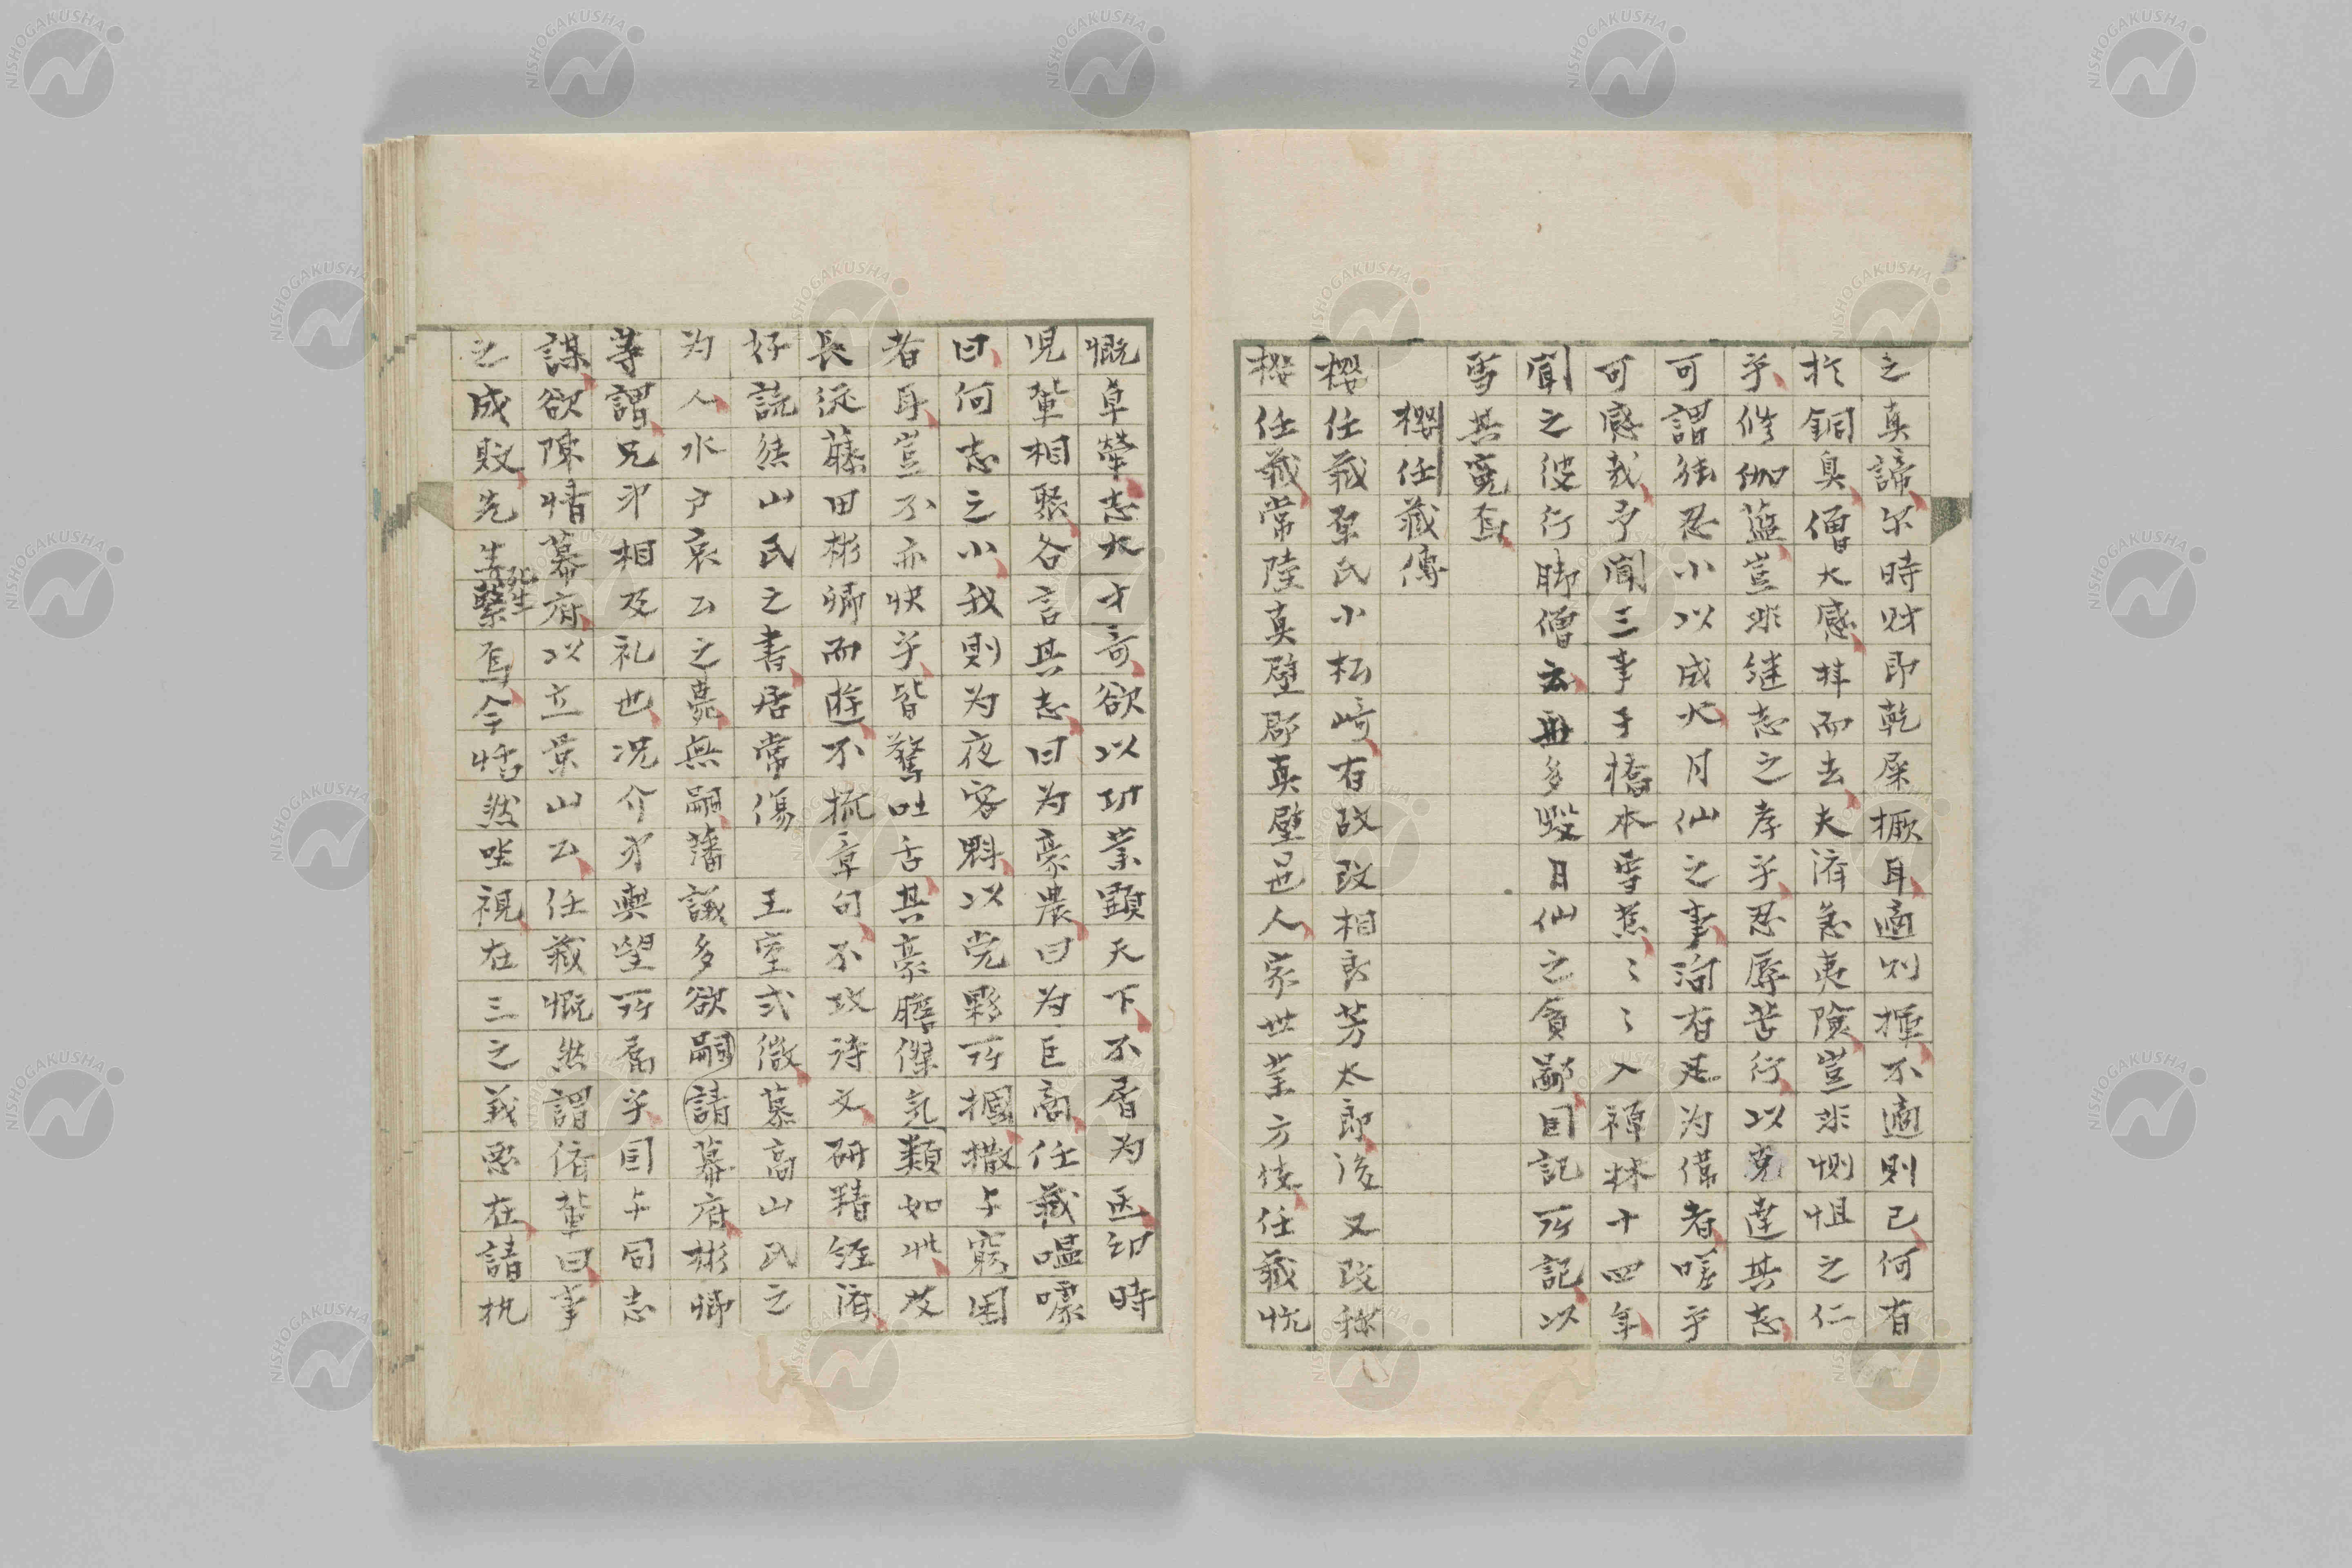 之真諦尔時財即乾屎橛耳適則揮不適則已何有
於銅臭僧大感拝而去夫済急夷險豈非惻怚之仁
乎修伽藍豈非继志之孝乎忍辱苦行以克達其志
可謂能忍小以成大月仙之事洵有足为偉者嗟乎
可感哉予聞三事于橋本雪蕉〻〻入禅林十四年
聞之彼行脚僧云再多毀月仙之貪鄙因記所記以
雪其寃焉
櫻任蔵傳
櫻任蔵原氏小松﨑有故改相良芳太郎後又改称
櫻任蔵常陸真壁郡真壁邑人家世業方伎任蔵忼
慨卓犖志大才奇欲以功業顕天下不屑为医卯時
児輩相聚各言其志曰为豪農曰为巨商任蔵嗢噱
曰何志之小我則为夜客魁以党夥所掴撒与窮困
者耳豈不亦快乎皆驚吐舌其豪膽傑気類如此及
長従藤田彬卿而遊不抵章句不攻诗文研精経済
好読熊山氏之書居常傷 王室式微慕高山氏之
为人水户哀公之薨無嗣藩議多欲嗣請幕府彬卿
等謂兄弟相及礼也况介弟輿望所属乎因与同志
謀欲陳情幕府以立景山公任蔵慨然謂侪輩曰事
之成敗先生死生繋焉今恬然坐視在三之義悪在請執